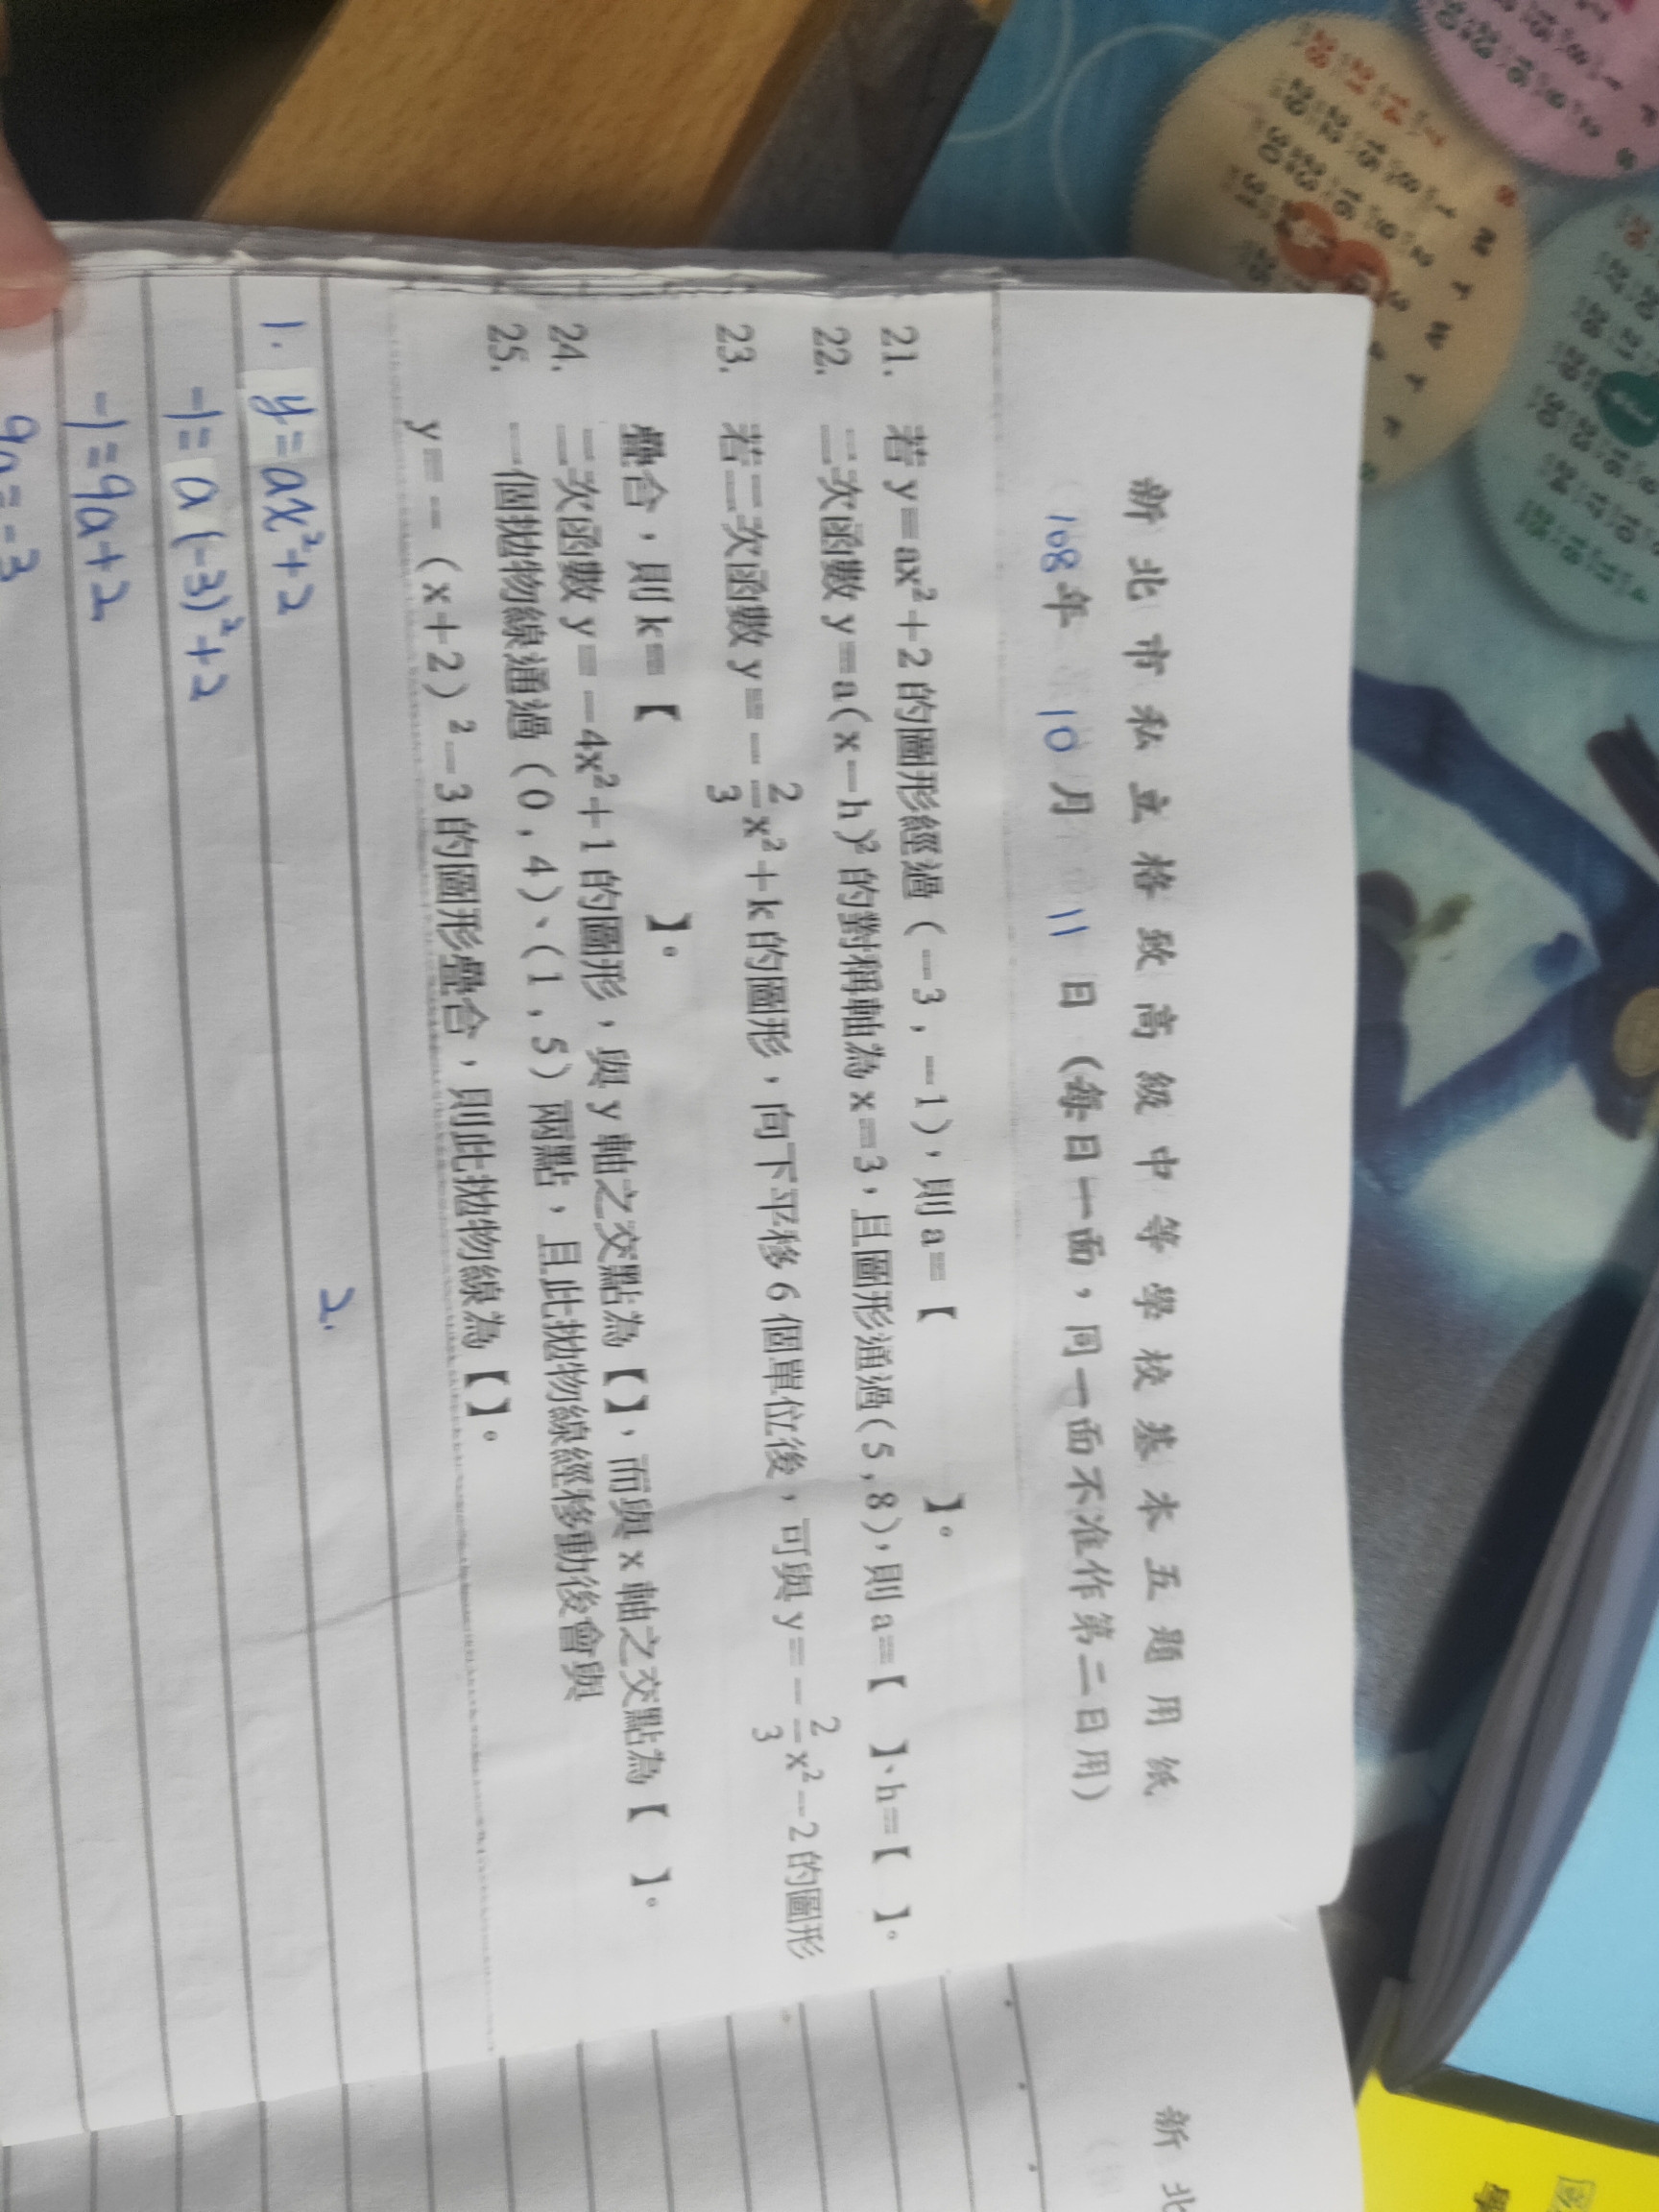 新北市私立格致高級中等學校基本五題用紙
108年10月11日(每日一面,同一面不准作第二日用)
21. 若 y=ax²+2 的圖形經過(-3,-1),則 a=【 】。
22. 二次函數 y=a(x-h)² 的對稱軸為 x=3,且圖形通過(5,8),則 a=【 】、h=【 】。
23. 若二次函數 y=-2/3x²+k 的圖形,向下平移 6 個單位後,可與 y=-2/3x²-2 的圖形
疊合,則 k=【 】。
24. 二次函數 y=-4x²+1 的圖形,與 y 軸之交點為【】,而與 x 軸之交點為【 】。
25. 一個拋物線通過(0,4)、(1,5)兩點,且此拋物線經移動後會與
y=-(x+2)²-3 的圖形疊合,則此拋物線為【】。
1. y=ax²+2
-1=a(-3)²+2
-1=9a+2
9a=-3
2.
新北
S M T W T F